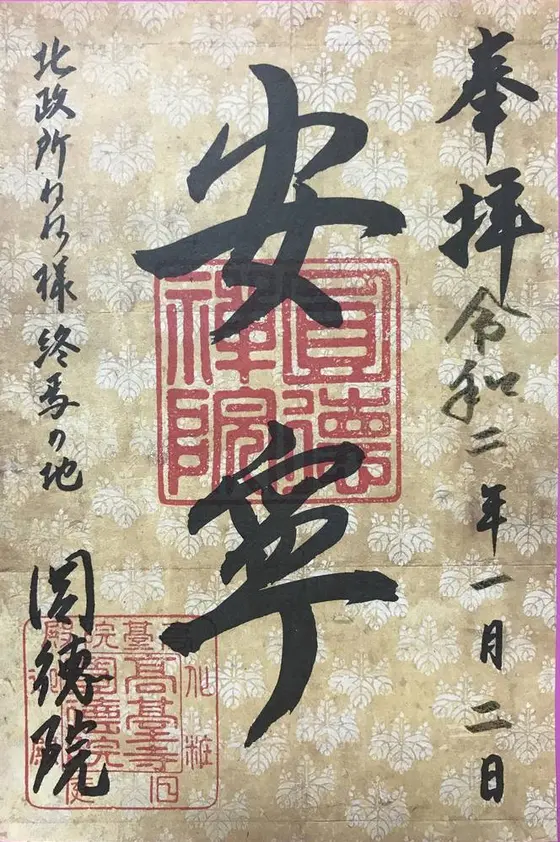 奉拝 令和二年一月二日
安寧
圓徳禅院
北政所ねね様 終焉の地
圓徳院
高臺寺